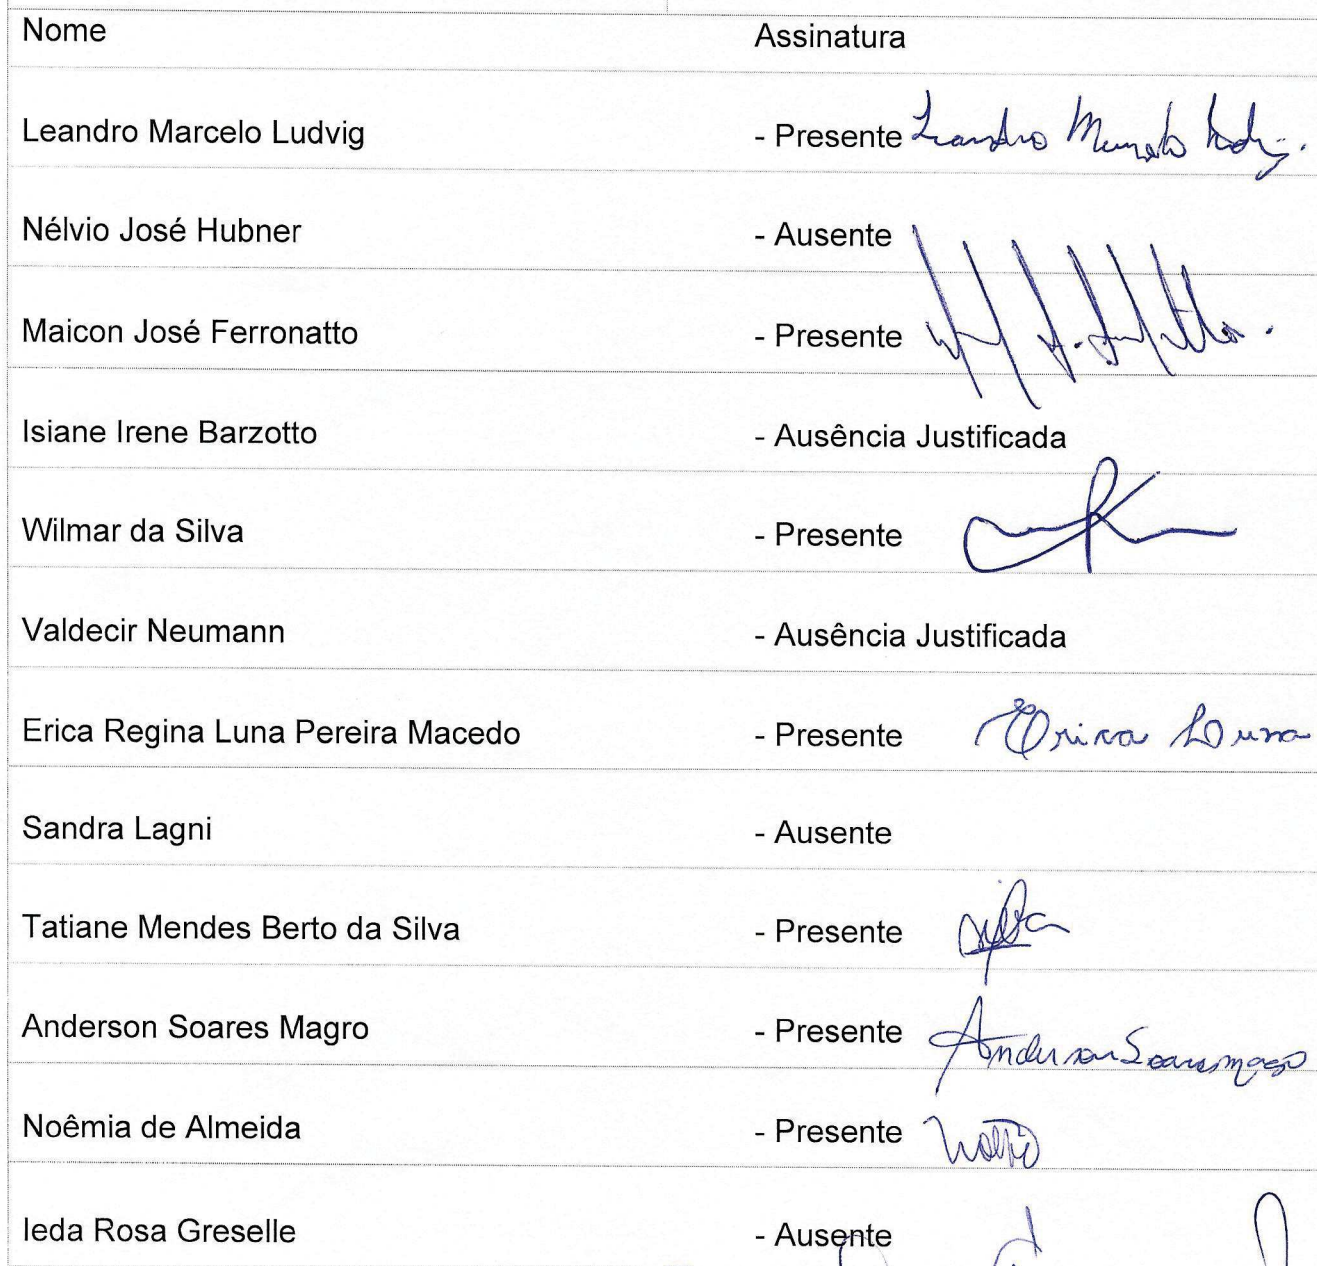 Nome Assinatura
Leandro Marcelo Ludvig - Presente Leandro
Nélvio José Hubner - Ausente
Maicon José Ferronatto - Presente
Isiane Irene Barzotto - Ausência Justificada
Wilmar da Silva - Presente
Valdecir Neumann - Ausência Justificada
Erica Regina Luna Pereira Macedo - Presente Erica Luna
Sandra Lagni - Ausente
Tatiane Mendes Berto da Silva - Presente
Anderson Soares Magro - Presente Anderson Soares Magro
Noêmia de Almeida - Presente
Ieda Rosa Greselle - Ausente